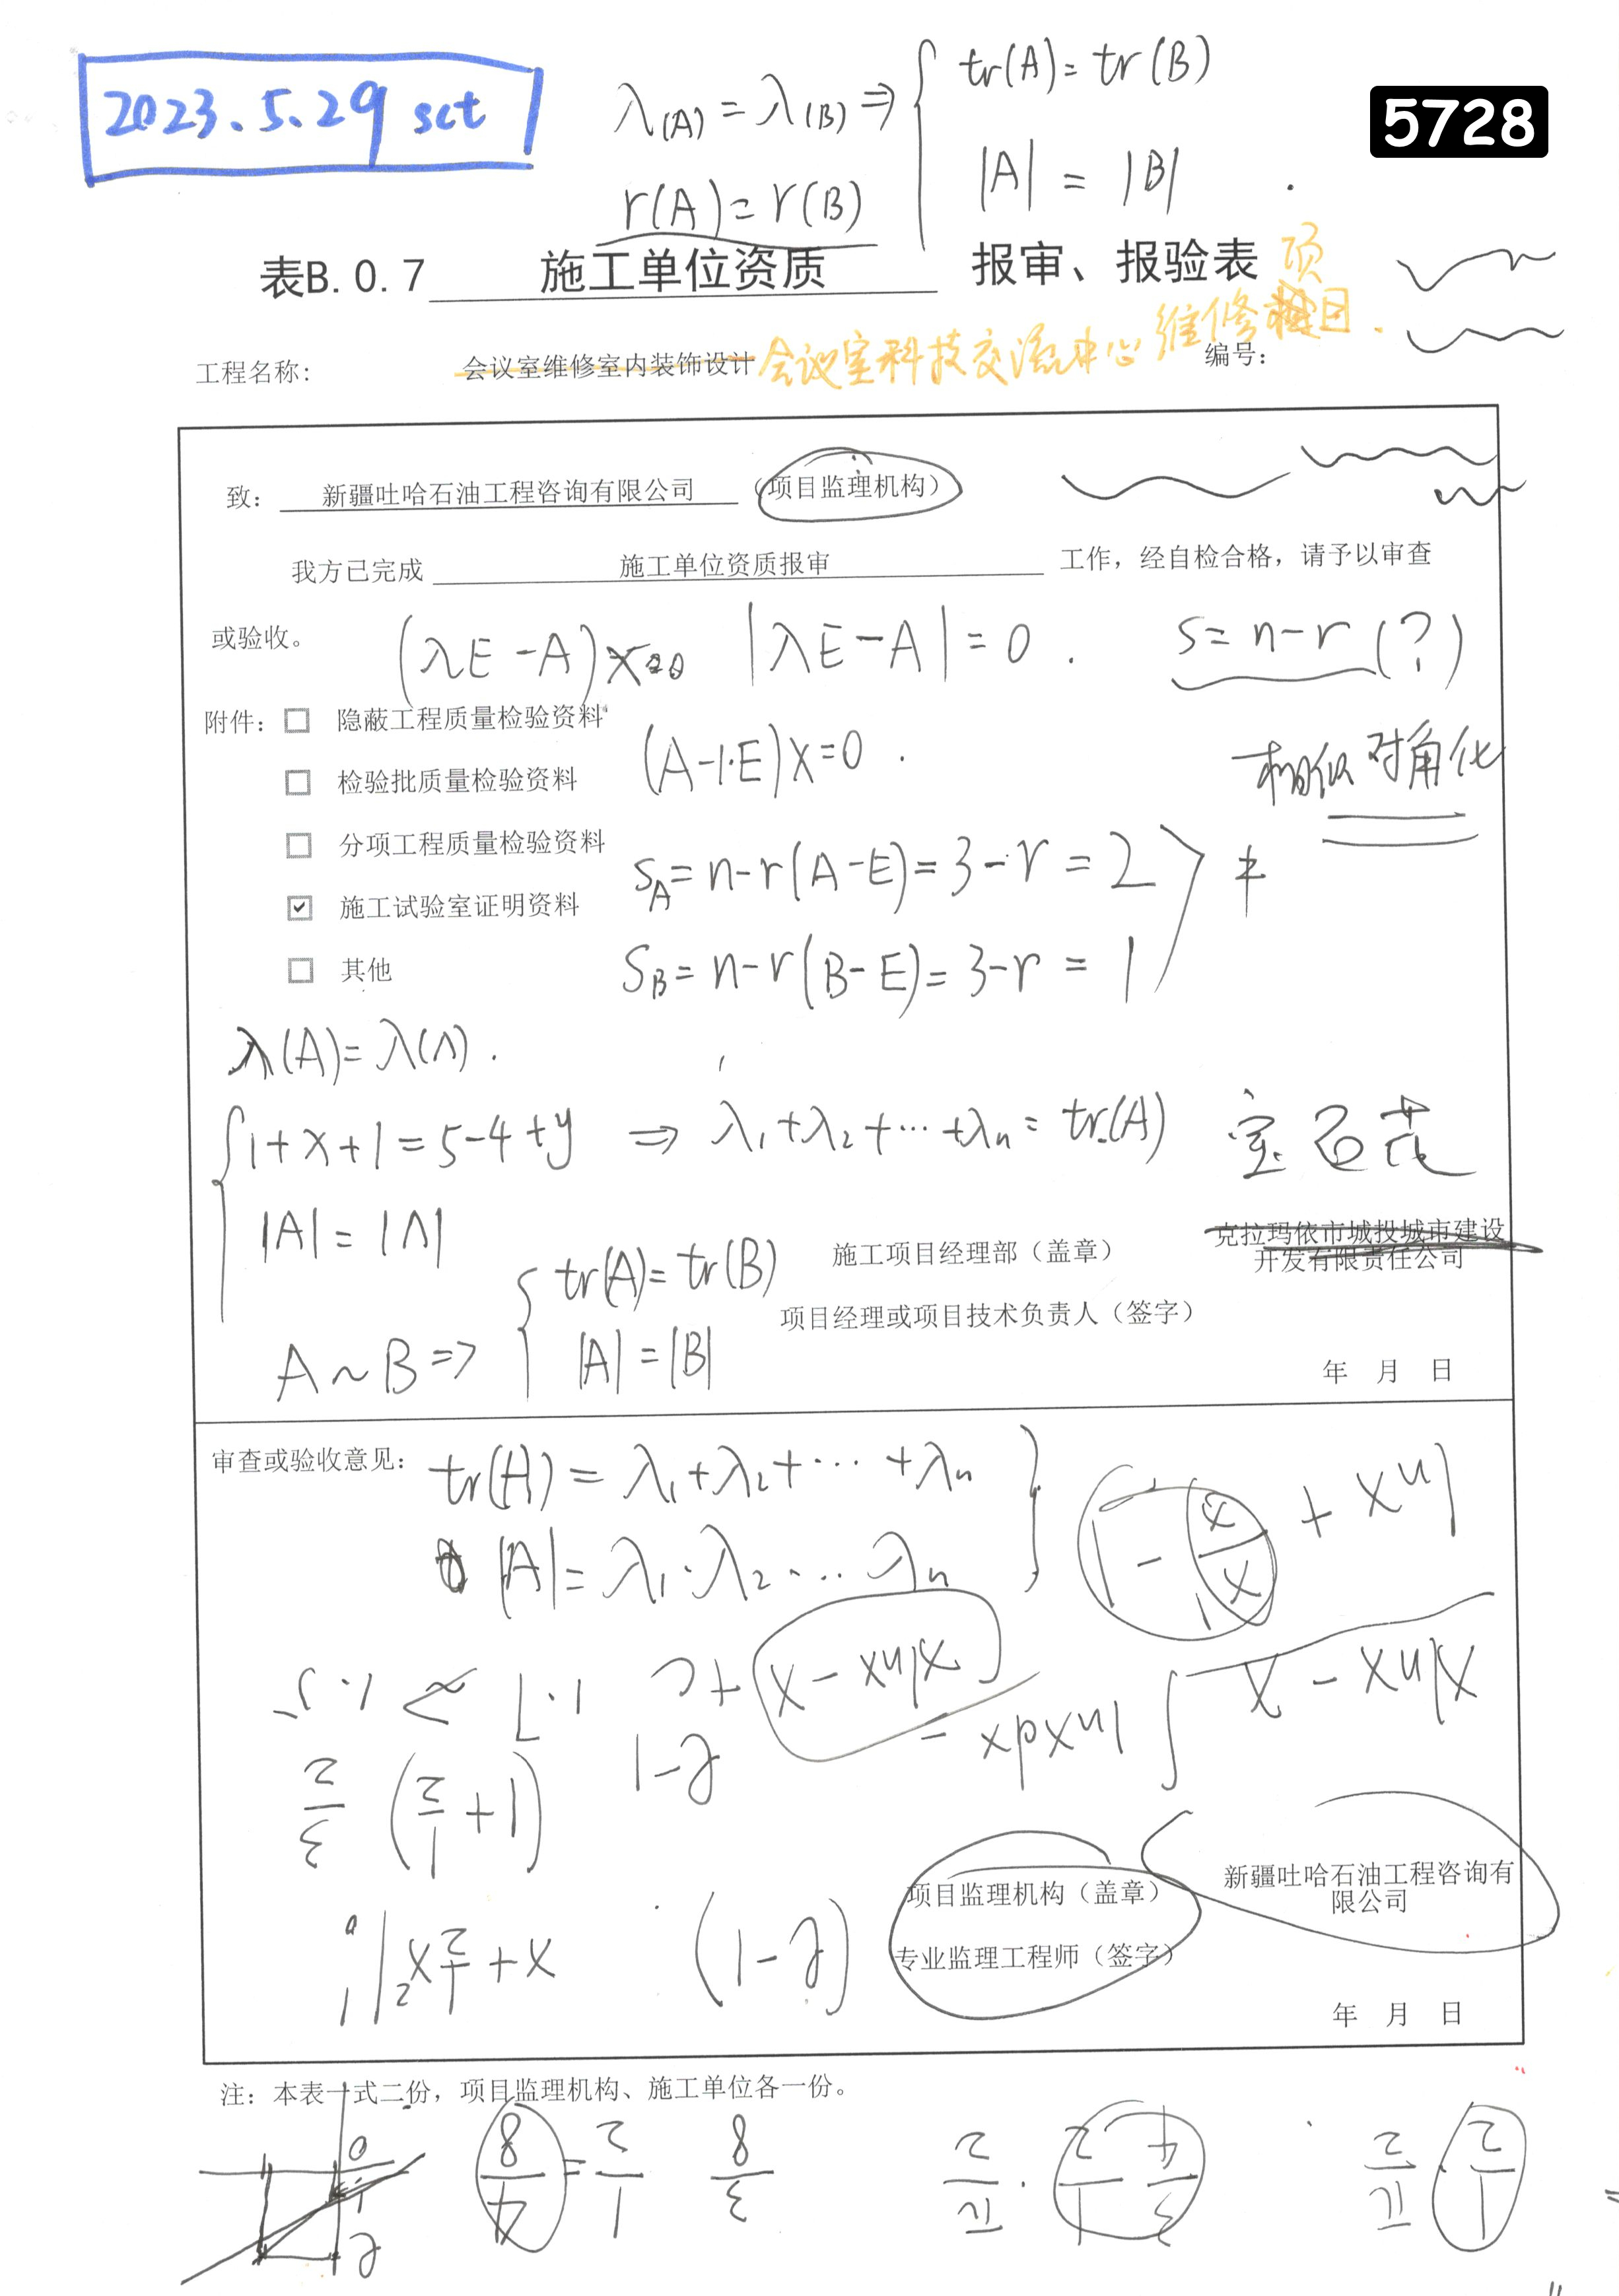 2023.5.29 sct
λ(A) = λ(B) ⇒ { tr(A) = tr(B)
|A| = |B| .
r(A) = r(B)
5728
表B.0.7 施工单位资质 报审、报验表 项
工程名称: 会议室维修室内装饰设计 会议室科技交流中心维修 目. 编号:
致: 新疆吐哈石油工程咨询有限公司 (项目监理机构)
我方已完成 施工单位资质报审 工作,经自检合格,请予以审查
或验收。
(λE-A)x=0 |λE-A|=0. s=n-r (?)
附件: □ 隐蔽工程质量检验资料
(A-1·E)x=0.
相似对角化
□ 检验批质量检验资料
□ 分项工程质量检验资料
S_A=n-r(A-E)=3-r=2 ≠
☑ 施工试验室证明资料
S_B=n-r(B-E)=3-r=1
□ 其他
λ(A)=λ(Λ).
{ 1+x+1=5-4+y ⇒ λ₁+λ₂+…+λₙ=tr(A)
宝石花
|A|=|Λ|
施工项目经理部(盖章) 克拉玛依市城投城市建设
开发有限责任公司
项目经理或项目技术负责人(签字)
A~B ⇒ { tr(A)=tr(B)
|A|=|B|
年 月 日
审查或验收意见: tr(A)=λ₁+λ₂+…+λₙ }
|A|=λ₁·λ₂…λₙ
lnx + x/x - 1
xlnx - x
∫lnxdx = xlnx - x + C
1.7 > 1.5
e-1
(1+1/2) 3/2
项目监理机构(盖章) 新疆吐哈石油工程咨询有
限公司
(e-1)
x+1/2x²|
专业监理工程师(签字)
年 月 日
注: 本表一式二份,项目监理机构、施工单位各一份。
1/2 · π/2
3/4 · 1/2 · π/2
3/8
1/2 = 4/8